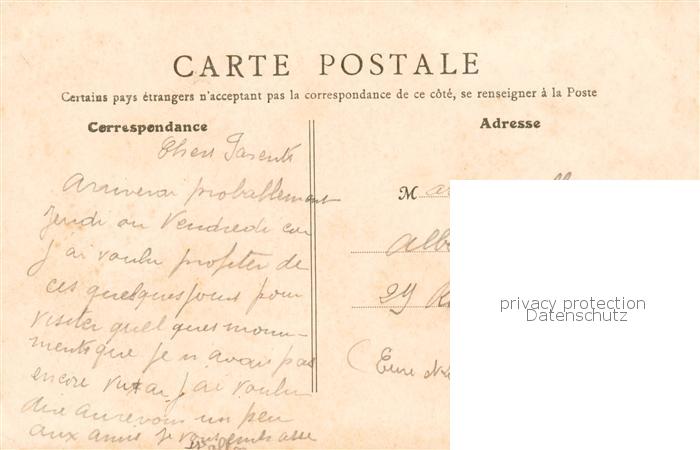 CARTE POSTALE
Certains pays étrangers n'acceptant pas la correspondance de ce côté, se renseigner à la Poste
Correspondance
Chers Parents
Arriverai probablement
Jeudi ou Vendredi car
J'ai voulu profiter de
ces quelques jours pour
visiter quelques monu-
ments que je n'avais pas
encore vu et ai J'ai voulu
dire au revoir un peu
aux amis Je vous embrasse
Adresse
M
29
(Eure
privacy protection
Datenschutz